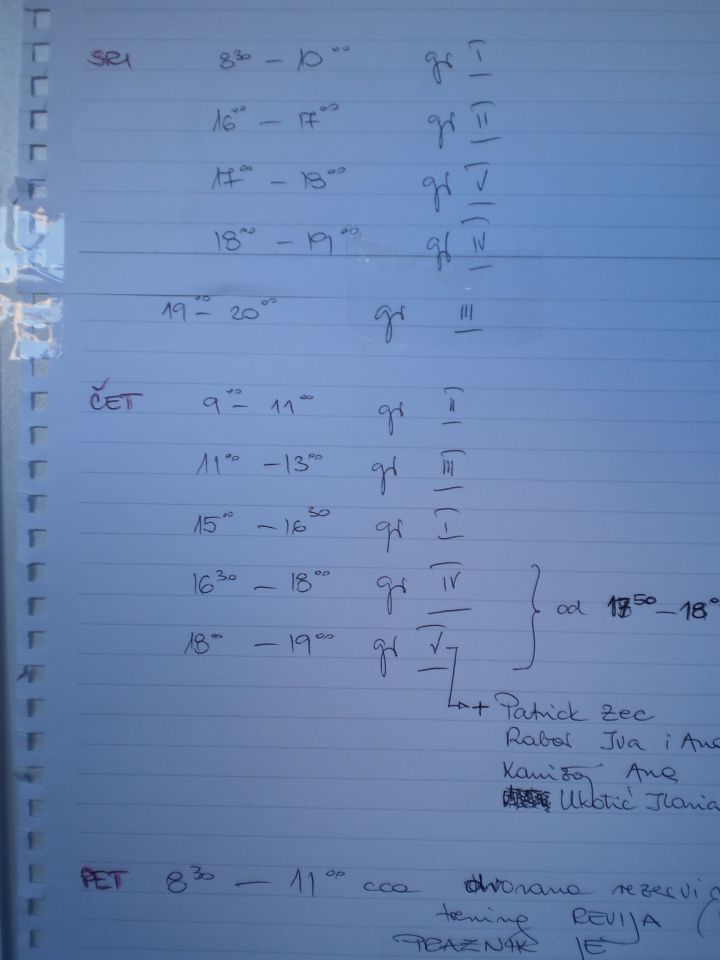 SRI 8³⁰ – 10⁰⁰ gr I
16⁰⁰ – 17⁰⁰ gr II
17⁰⁰ – 18⁰⁰ gr V
18⁰⁰ – 19⁰⁰ gr IV
19⁰⁰ – 20⁰⁰ gr III
ČET 9⁰⁰ – 11⁰⁰ gr II
11⁰⁰ – 13⁰⁰ gr III
15⁰⁰ – 16³⁰ gr I
16³⁰ – 18⁰⁰ gr IV
od 17⁵⁰ – 18⁰
18⁰⁰ – 19⁰⁰ gr V
→ + Patrick Zec
Iva i Ana
Ana
Ukotić
PET 8³⁰ – 11⁰⁰ cca dvorana
trening REVIJA (
PRAZNIK JE